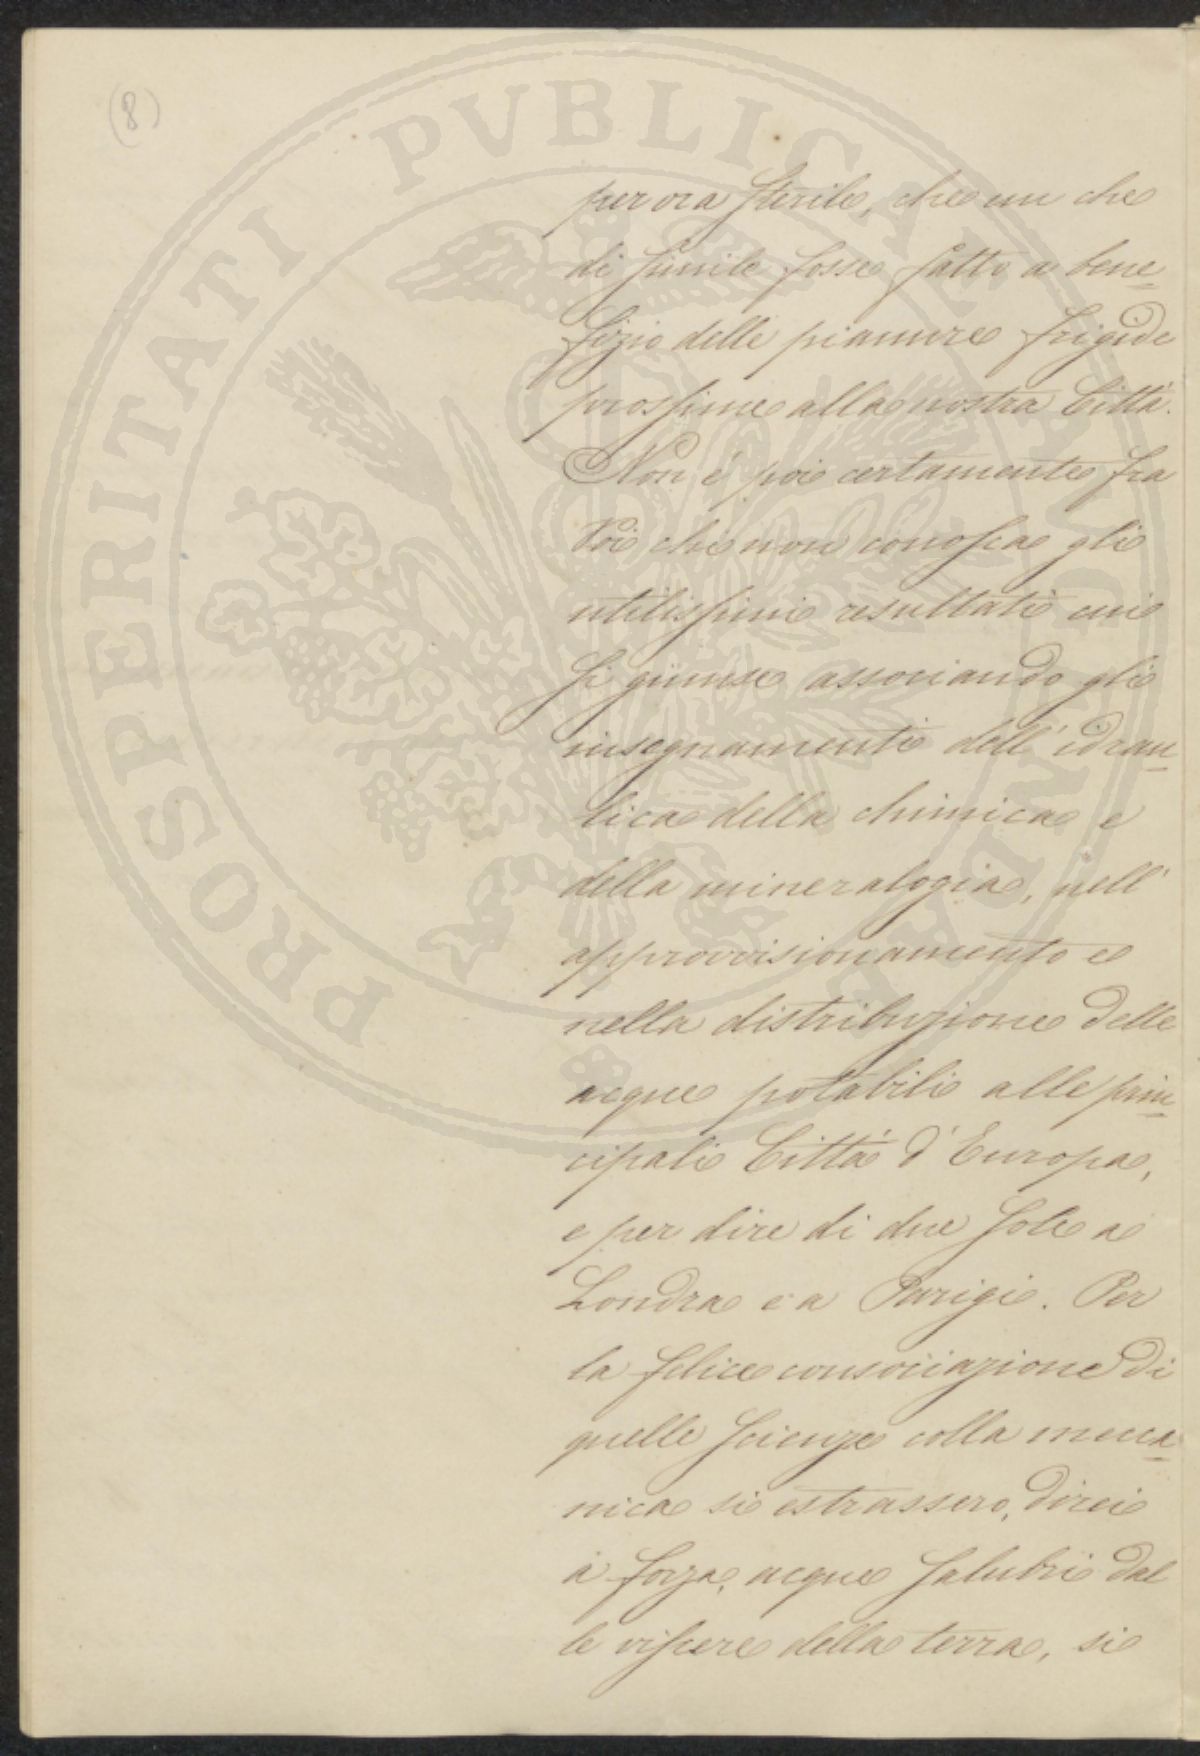 (8)
per ora sterile, che un che
di simile fosse fatto a bene-
fizio delle pianure frigide
prossime alla nostra Città.
Non è poi certamente fra
Voi chi non conosca gli
utilissimi resultati cui
si giunse associando gli
insegnamenti dell'idrau-
lica della chimica e
della mineralogia, nell'
approvvisionamento e
nella distribuzione delle
acque potabili alle prin-
cipali Città d'Europa,
e per dire di due sole a
Londra e a Parigi. Per
la felice consociazione di
quelle scienze colla mecca-
nica si estrassero, direi
a forza, acque salubri dal
le viscere della terra, si
PROSPERITATI PVBLICAE AVGENDAE